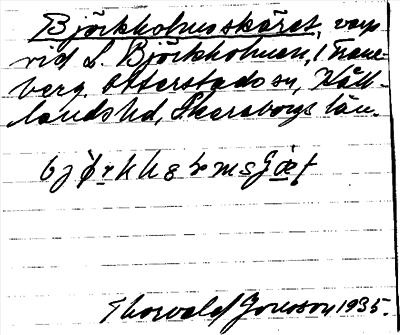 Björkholmsskäret, varp
vid L. Björkholmen, Trane-
berg Otterstads sn, Kåll-
lands hd, Skaraborgs län.
Thorvald Jonsson 1935.